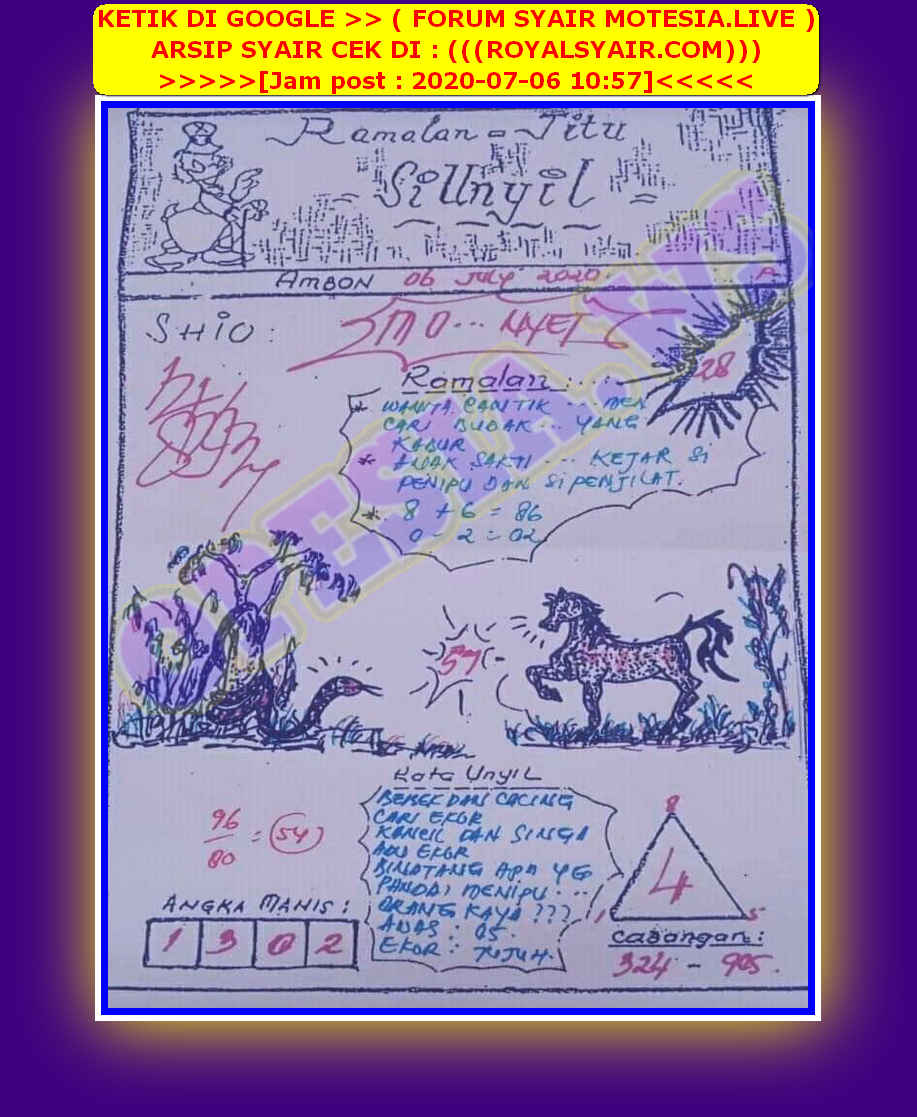 KETIK DI GOOGLE >> ( FORUM SYAIR MOTESIA.LIVE )
ARSIP SYAIR CEK DI : (((ROYALSYAIR.COM)))
>>>>>[Jam post : 2020-07-06 10:57]<<<<<
Ramalan = Jitu
SiUnyil
AMBON 06 JULY 2020.
SHIO :
28
Ramalan : ....
* WANITA CANTIK ... MEN
CARI BUDAK ... YANG
KABUR
* ANAK SAKTI ... KEJAR Si
PENIPU DAN Si PENJILAT.
* 8 + 6 = 86
0 - 2 = 02
57
Kata UnyiL
BEBEK DAN CACING
CARI EKOR
KANCIL DAN SINGA
ADU EKOR
BINATANG APA YG
PANDAI MENIPU ...
ORANG KAYA ???
AWAS : 05.
EKOR : TUJUH.
96
80
= 54
8
4
1 5
ANGKA MANIS :
1 3 0 2
Cabangan :
324 - 905.